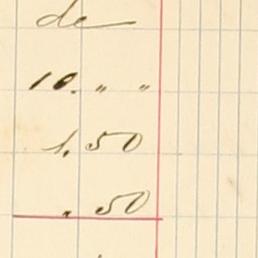 de
10. " "
1. 50
. 50